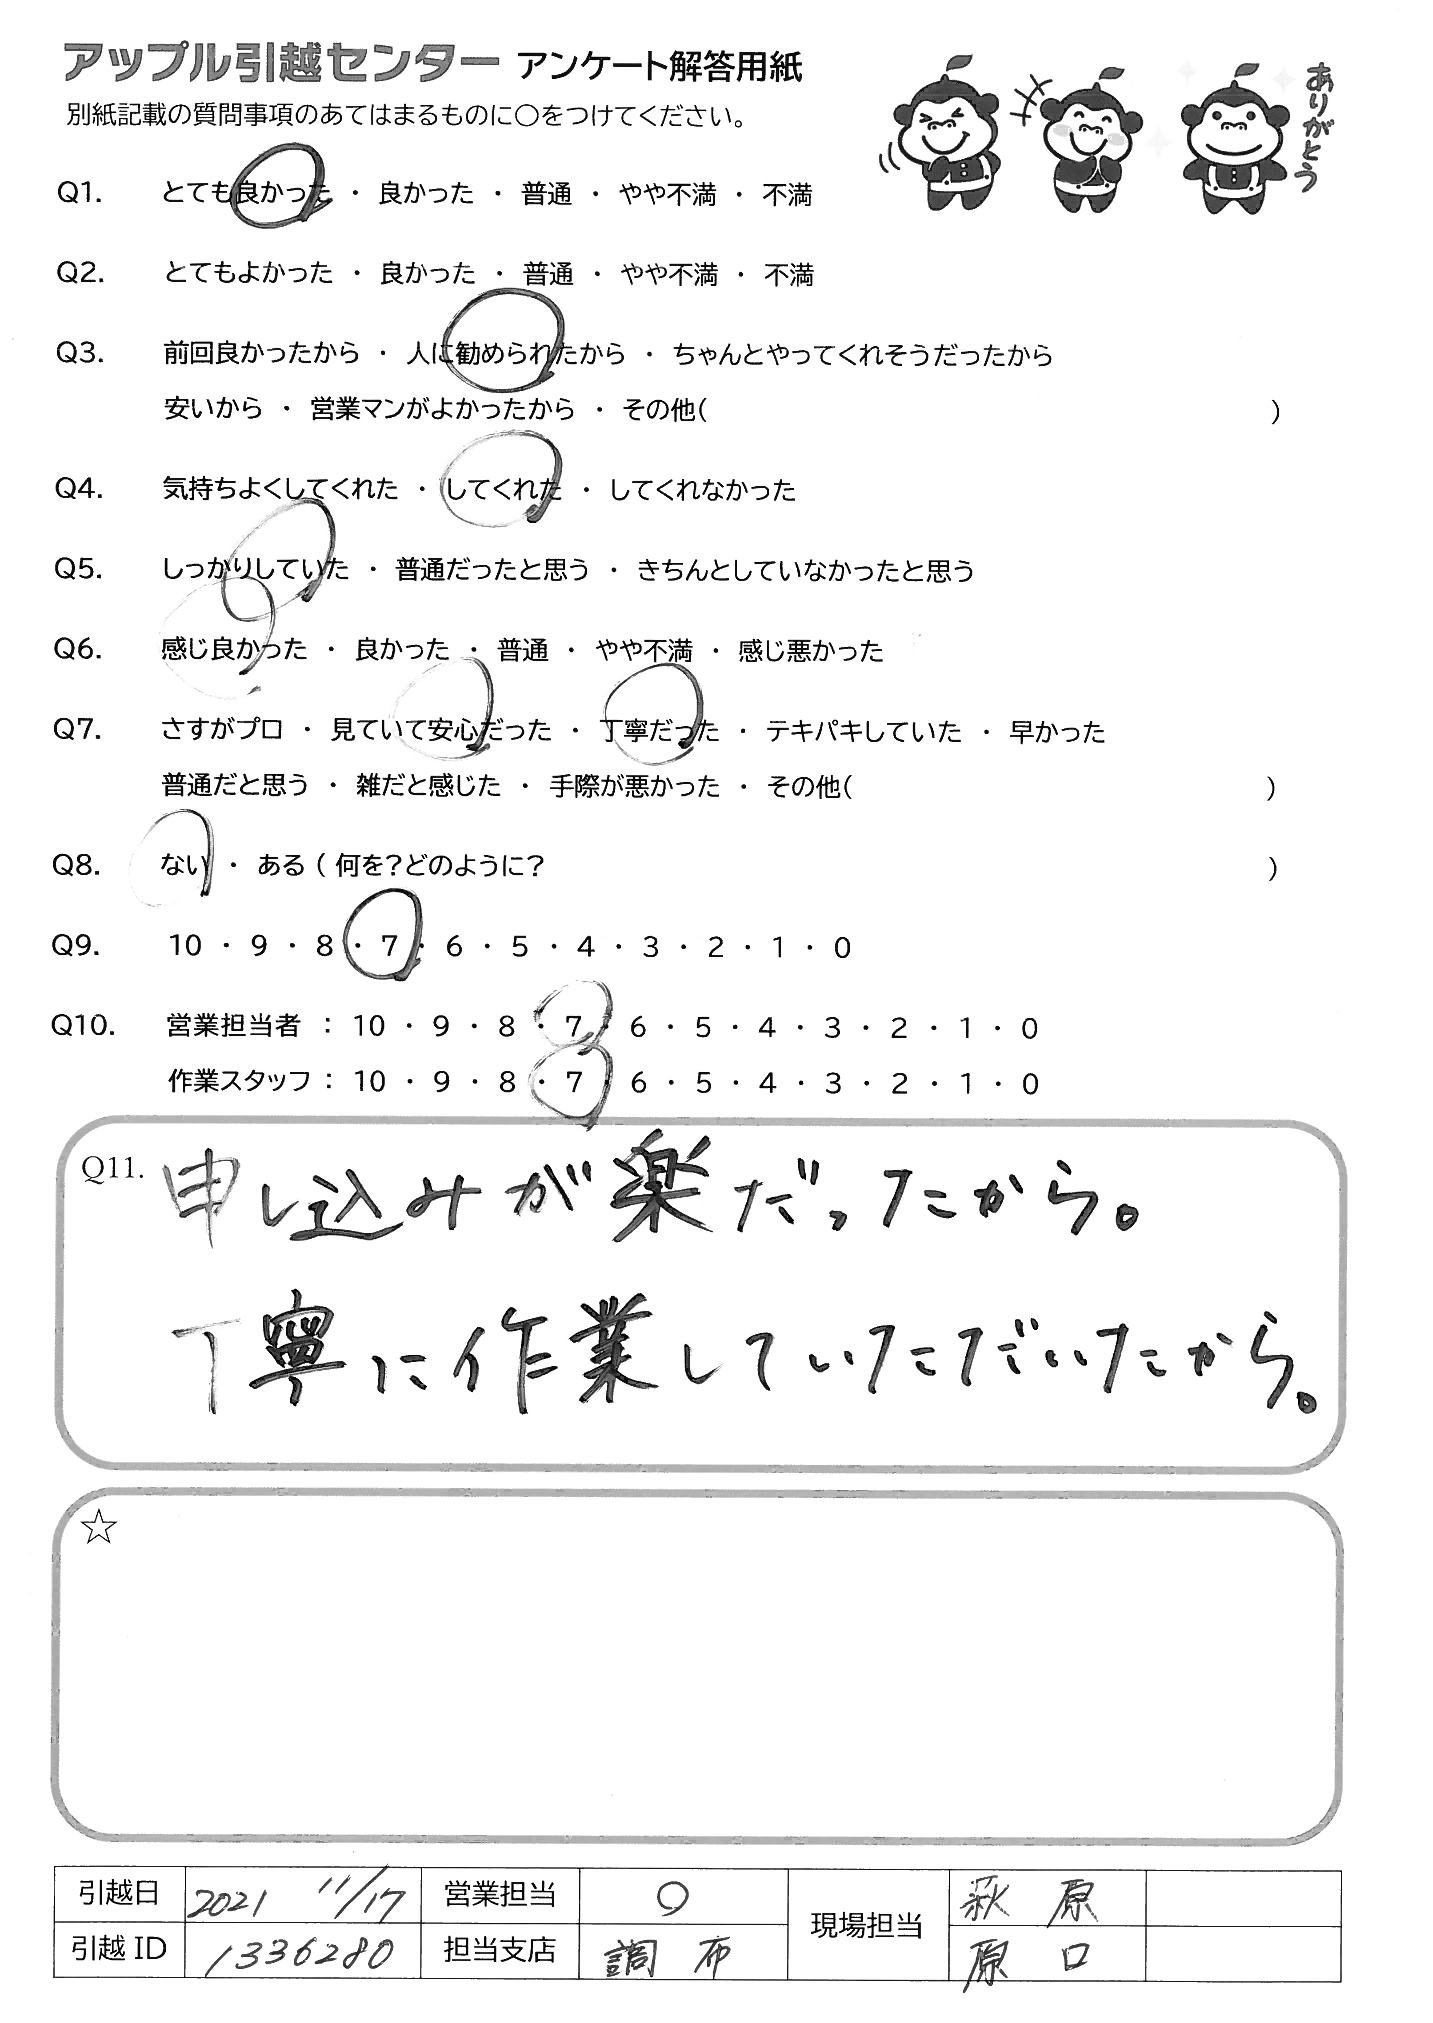 アップル引越センター アンケート解答用紙
別紙記載の質問事項のあてはまるものに○をつけてください。
ありがとう
Q1. とても良かった ・ 良かった ・ 普通 ・ やや不満 ・ 不満
Q2. とてもよかった ・ 良かった ・ 普通 ・ やや不満 ・ 不満
Q3. 前回良かったから ・ 人に勧められたから ・ ちゃんとやってくれそうだったから
安いから ・ 営業マンがよかったから ・ その他( )
Q4. 気持ちよくしてくれた ・ してくれた ・ してくれなかった
Q5. しっかりしていた ・ 普通だったと思う ・ きちんとしていなかったと思う
Q6. 感じ良かった ・ 良かった ・ 普通 ・ やや不満 ・ 感じ悪かった
Q7. さすがプロ ・ 見ていて安心だった ・ 丁寧だった ・ テキパキしていた ・ 早かった
普通だと思う ・ 雑だと感じた ・ 手際が悪かった ・ その他( )
Q8. ない ・ ある ( 何を?どのように? )
Q9. 10 ・ 9 ・ 8 ・ 7 ・ 6 ・ 5 ・ 4 ・ 3 ・ 2 ・ 1 ・ 0
Q10. 営業担当者 : 10 ・ 9 ・ 8 ・ 7 ・ 6 ・ 5 ・ 4 ・ 3 ・ 2 ・ 1 ・ 0
作業スタッフ : 10 ・ 9 ・ 8 ・ 7 ・ 6 ・ 5 ・ 4 ・ 3 ・ 2 ・ 1 ・ 0
Q11. 申し込みが楽だったから。
丁寧に作業していただいたから。
☆
引越日 2021 11/17 営業担当 ○ 現場担当 萩原
引越ID 1336280 担当支店 調布 原口